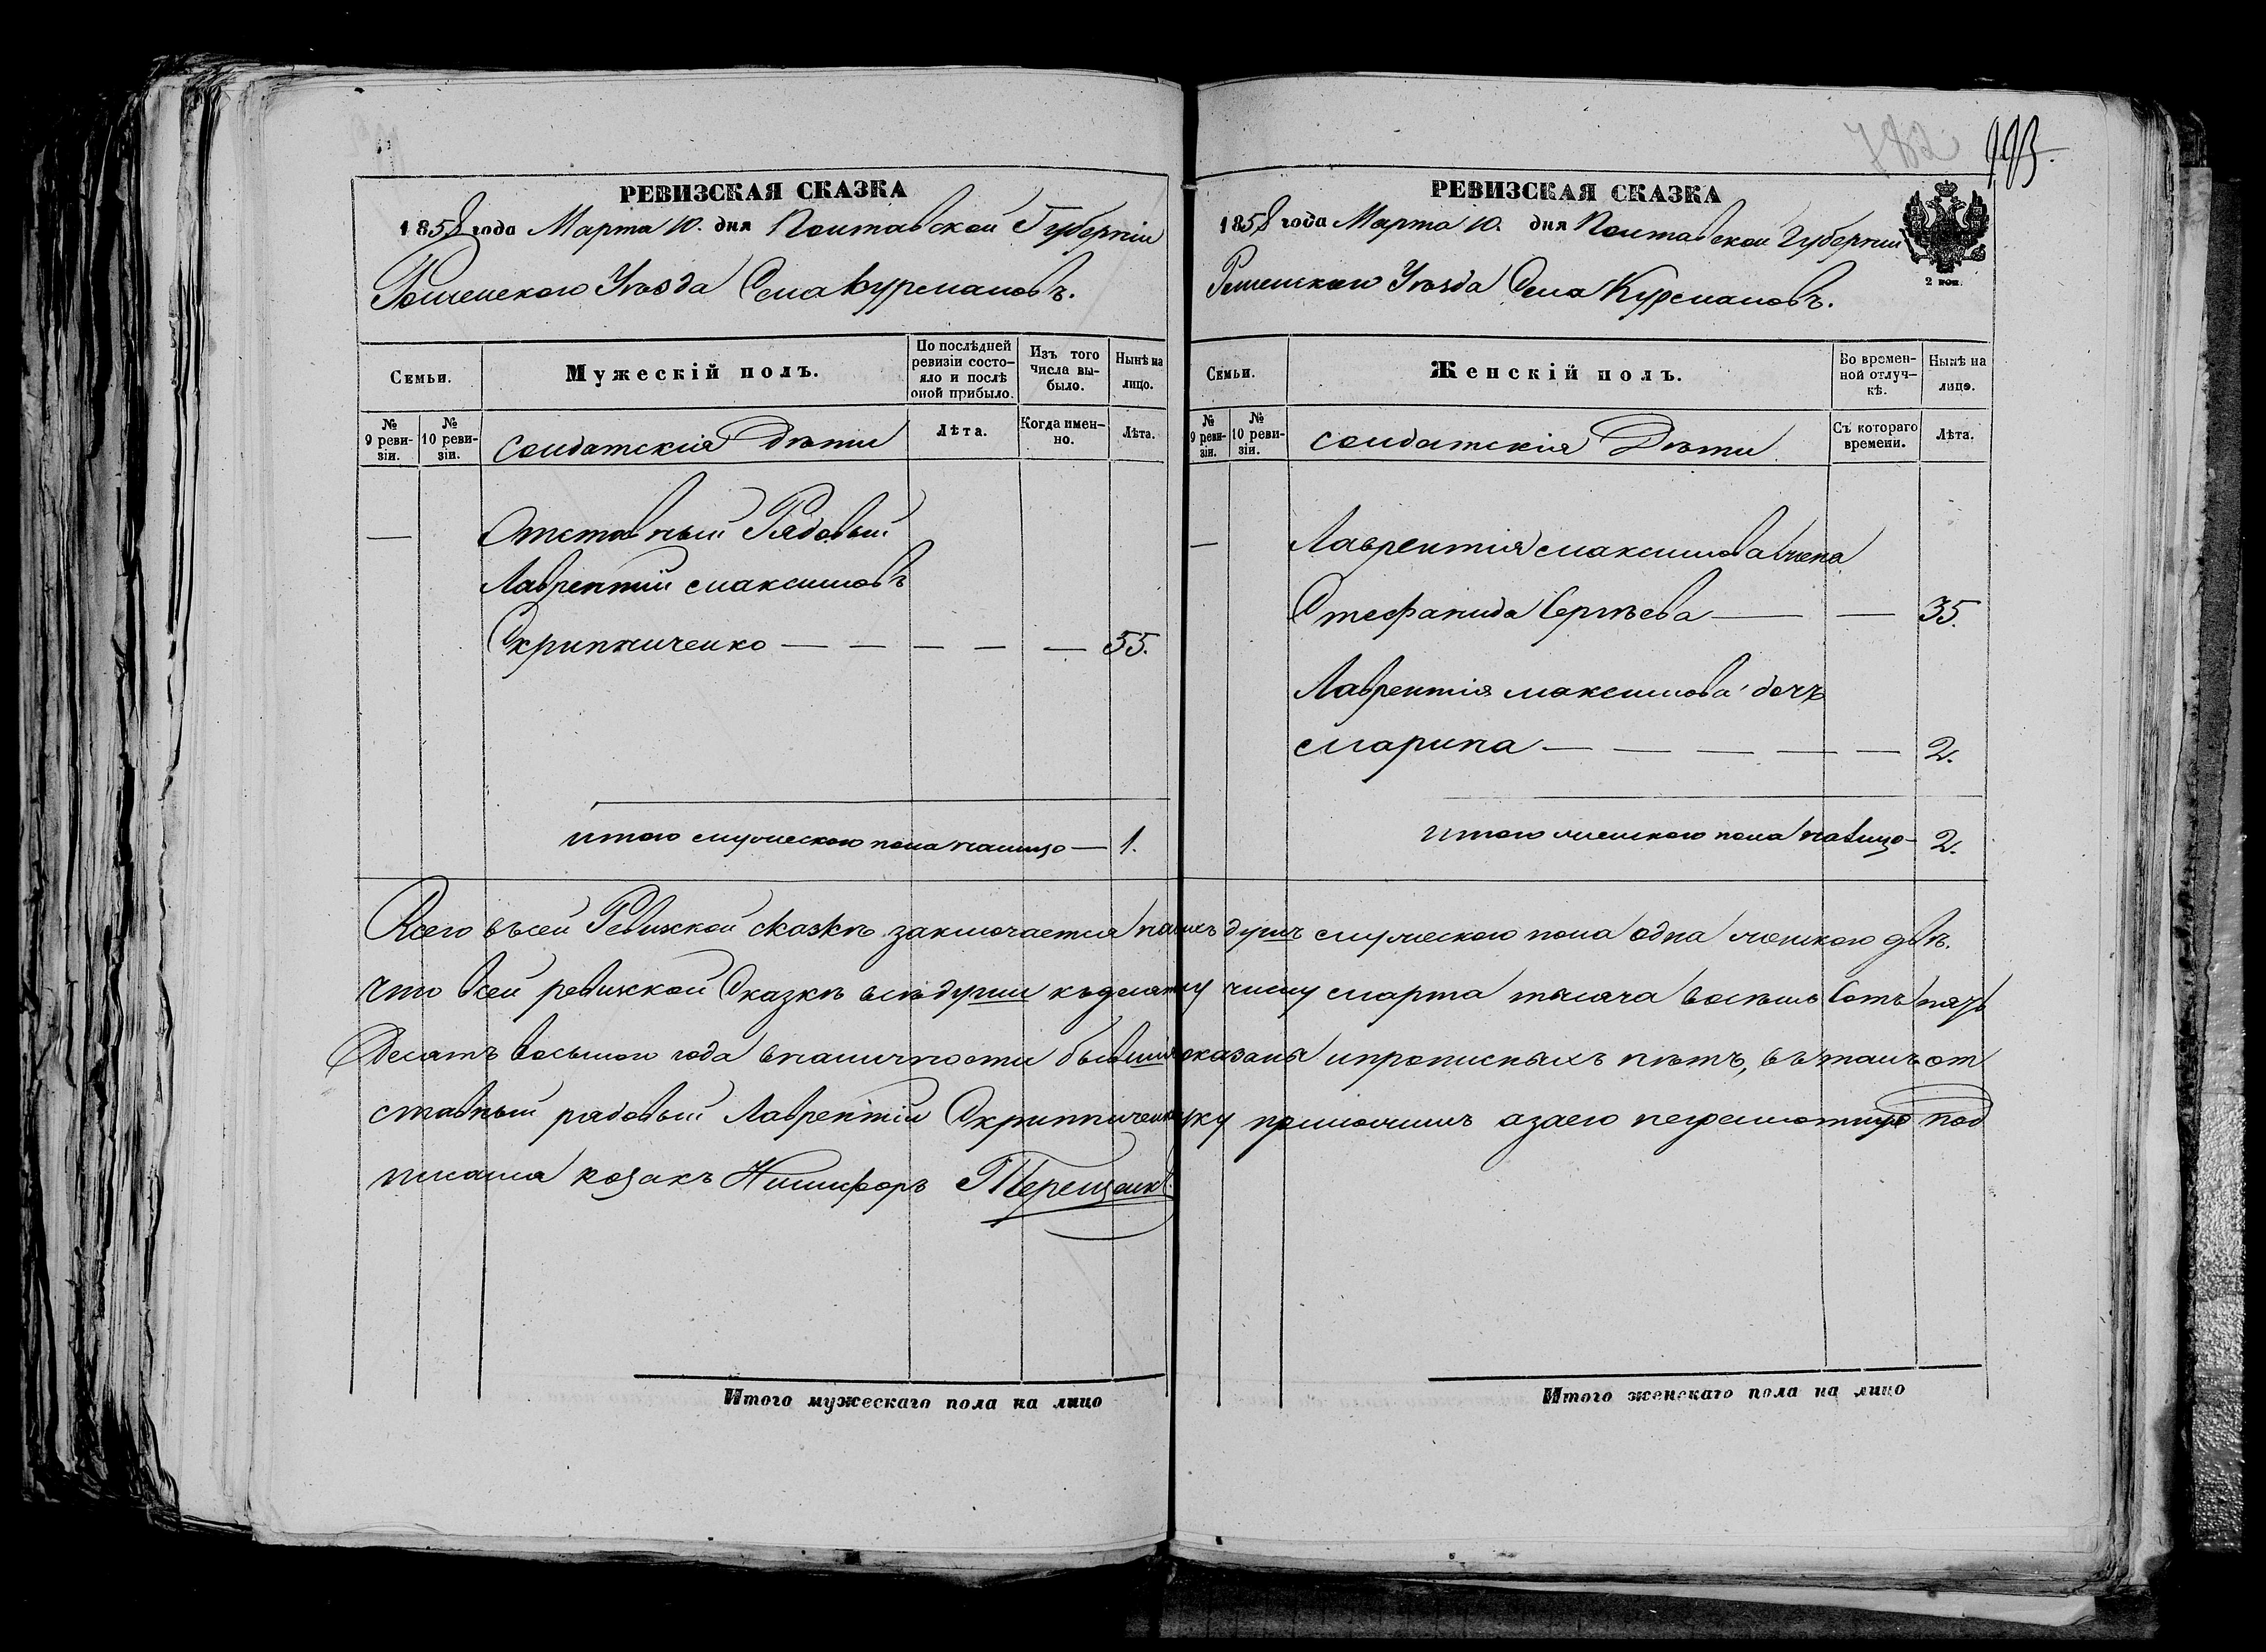 782 993.
РЕВИЗСКАЯ СКАЗКА
1858 года Марта 10. дня Полтавской Губерніи
Роменского Уѣзда Села Курмановъ.
Семьи.
Мужескій полъ.
По послѣдней ревизіи состояло и послѣ оной прибыло.
Изъ того числа выбыло.
Нынѣ на лицо.
№ 9 ревизіи.
№ 10 ревизіи.
Солдатскія Дѣти
Лѣта.
Когда именно.
Лѣта.
— Отставный Рядовый
Лаврентій Максимовъ
Скрипниченко — — — — — 55.
итого мужеского пола налицо — 1.
РЕВИЗСКАЯ СКАЗКА
1858 года Марта 10. дня Полтавской Губерніи
Роменского Уѣзда Села Курмановъ.
2 коп.
Семьи.
Женскій полъ.
Во временной отлучкѣ.
Нынѣ на лицо.
№ 9 ревизіи.
№ 10 ревизіи.
Солдатскія Дѣти
Съ котораго времени.
Лѣта.
— Лаврентія Максимова жена
Стефанида Сергѣева — — 35.
Лаврентія Максимова дочь
Марина — — — — — 2.
итого женского пола налицо — 2.
Всего въ сей Ревизской сказкѣ заключается налицо душъ мужеского пола одна женского двѣ.
Что всей ревизской Сказкѣ всѣ души къ десятому числу Марта тысяча восѣмь сотъ пять
Десятъ восьмого года вналичности бывшія показаны ипрописныхъ нѣтъ, въ томъ от
ставный рядовый Лаврентій Скрипниченко руку приложилъ азаего неграмотного под
писался козакъ Никифоръ Терещенко
Итого мужескаго пола на лицо
Итого женскаго пола на лицо